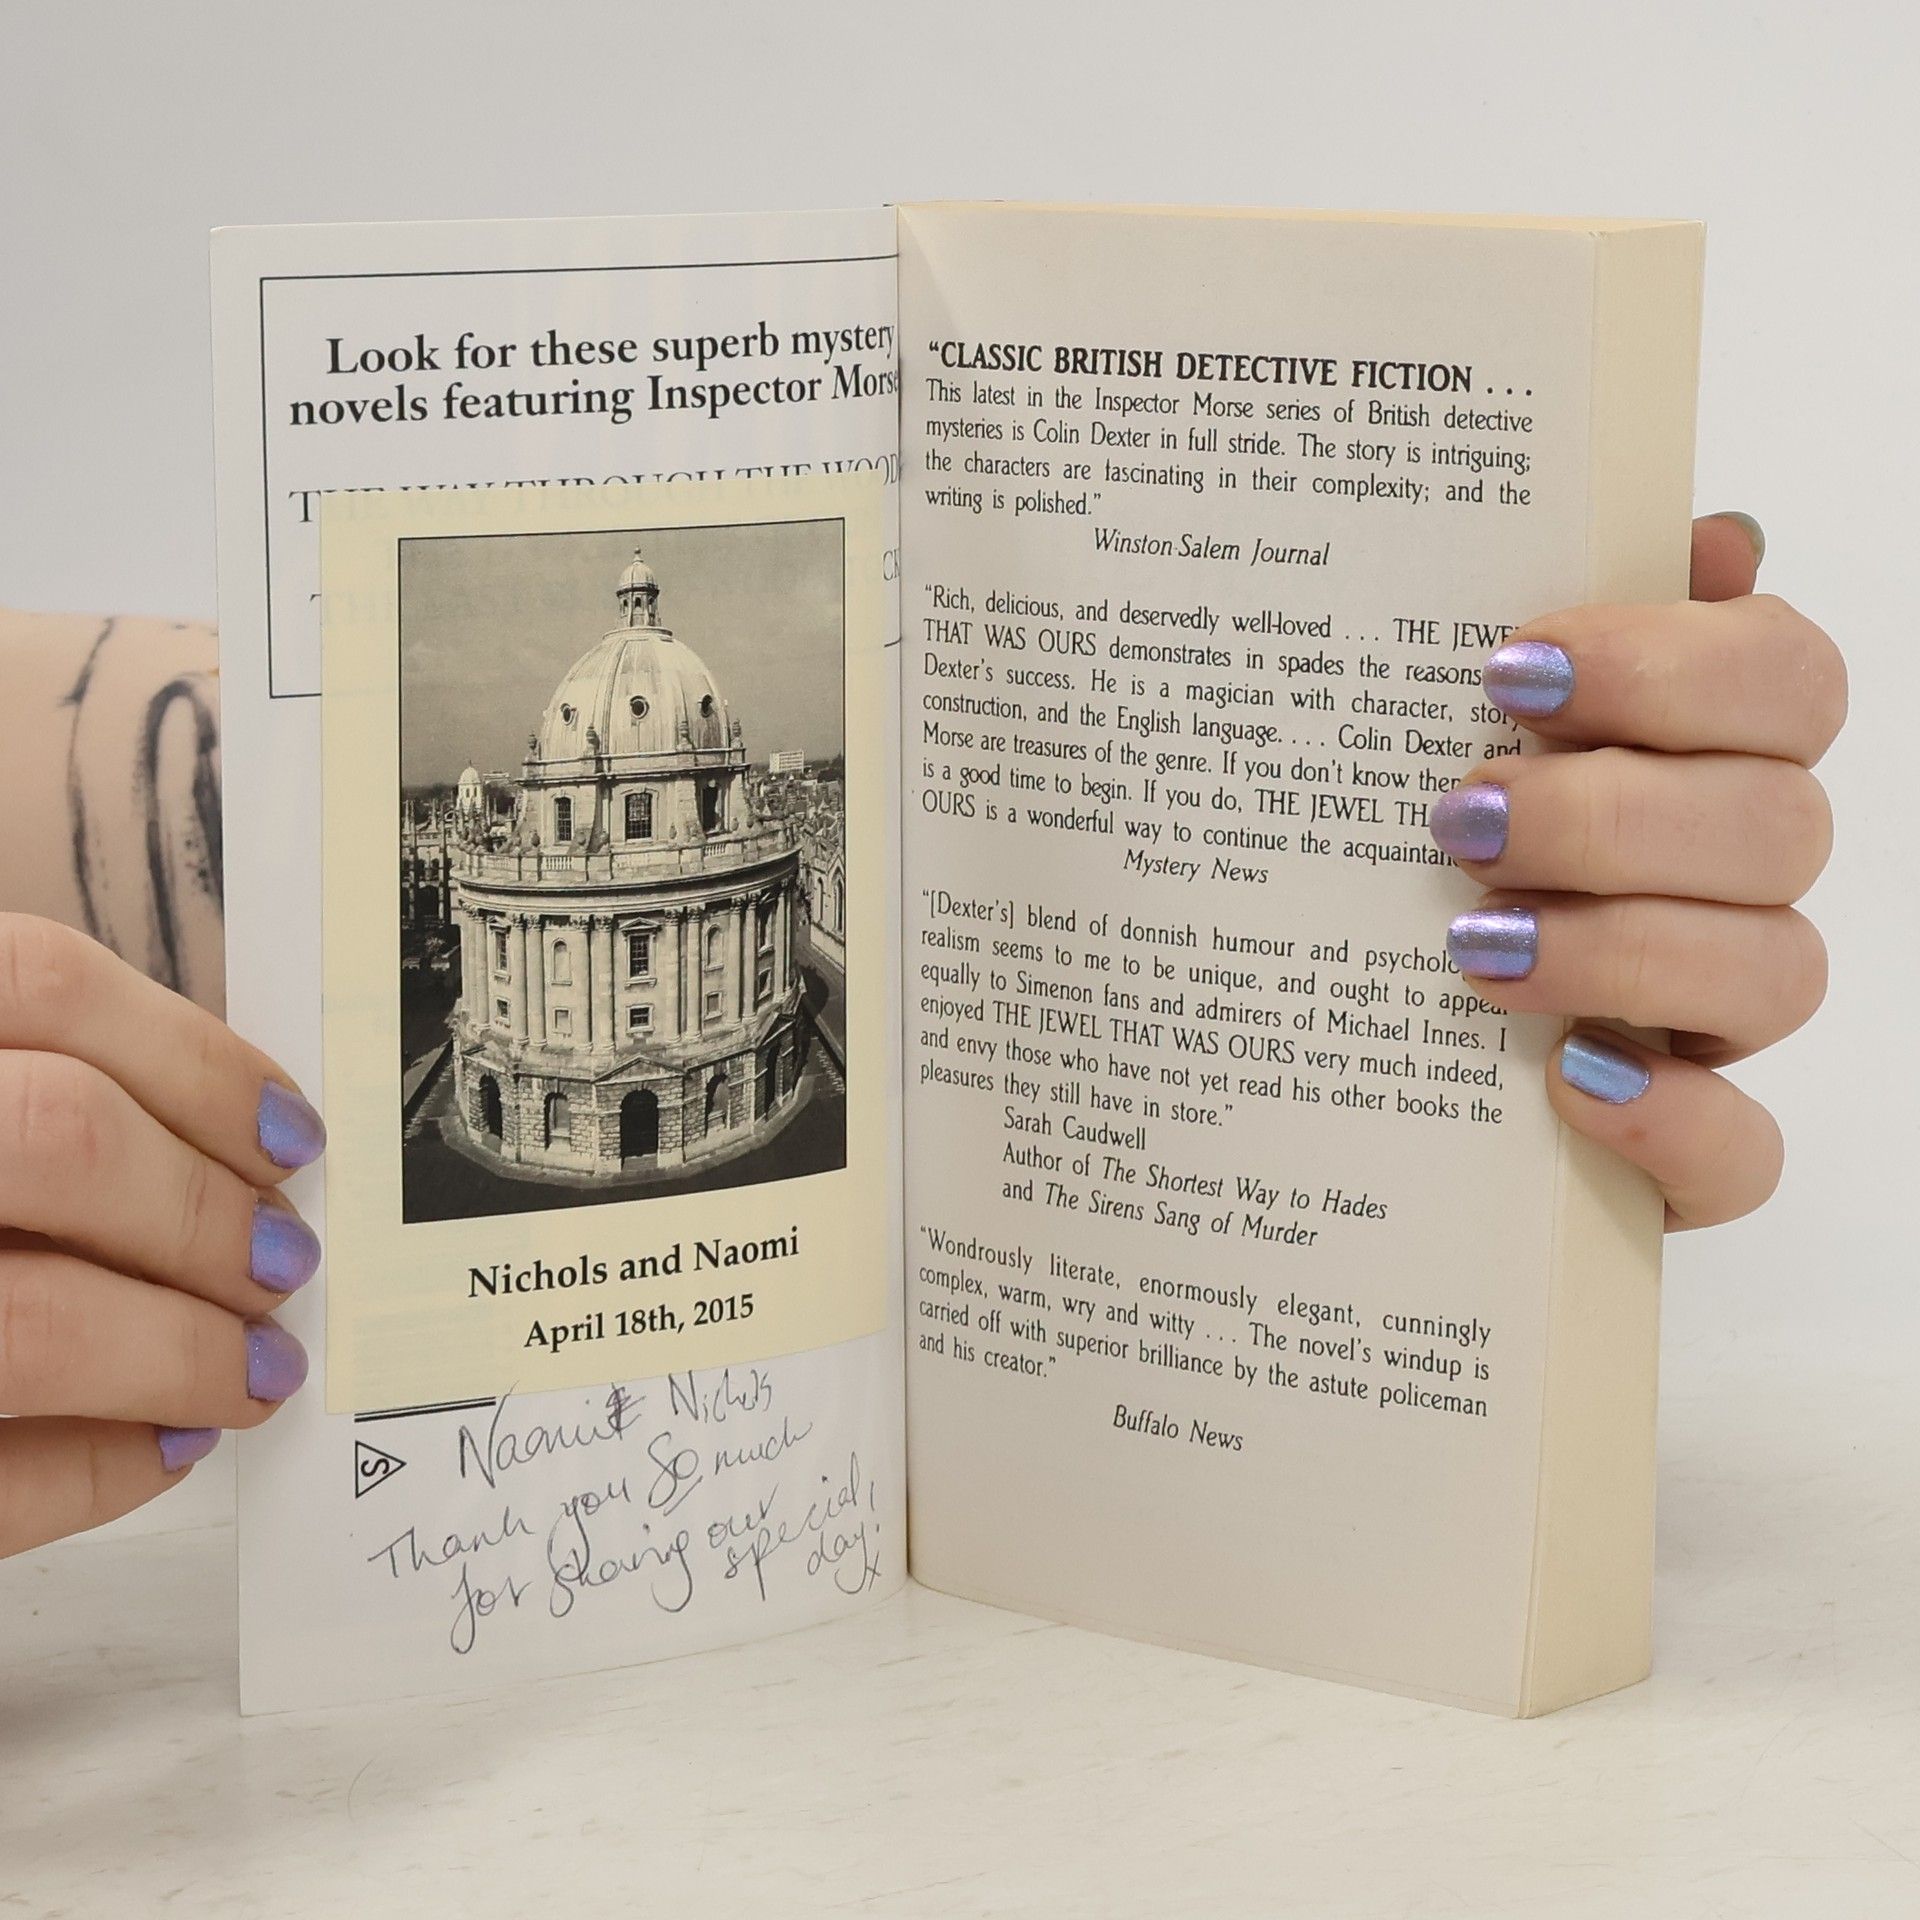 Look for these superb mystery
novels featuring Inspector Morse
THE WAY THROUGH THE WOOD
Nichols and Naomi
April 18th, 2015
Naomi & Nichols
Thank you SO much
for sharing our
special
day! x
S
“CLASSIC BRITISH DETECTIVE FICTION . . .
This latest in the Inspector Morse series of British detective
mysteries is Colin Dexter in full stride. The story is intriguing;
the characters are fascinating in their complexity; and the
writing is polished.”
Winston-Salem Journal
“Rich, delicious, and deservedly well-loved . . . THE JEWEL
THAT WAS OURS demonstrates in spades the reasons
Dexter’s success. He is a magician with character, story
construction, and the English language. . . . Colin Dexter and
Morse are treasures of the genre. If you don’t know them
is a good time to begin. If you do, THE JEWEL THA
OURS is a wonderful way to continue the acquaintan
Mystery News
“[Dexter’s] blend of donnish humour and psycholo
realism seems to me to be unique, and ought to appeal
equally to Simenon fans and admirers of Michael Innes. I
enjoyed THE JEWEL THAT WAS OURS very much indeed,
and envy those who have not yet read his other books the
pleasures they still have in store.”
Sarah Caudwell
Author of The Shortest Way to Hades
and The Sirens Sang of Murder
“Wondrously literate, enormously elegant, cunningly
complex, warm, wry and witty . . . The novel’s windup is
carried off with superior brilliance by the astute policeman
and his creator.”
Buffalo News